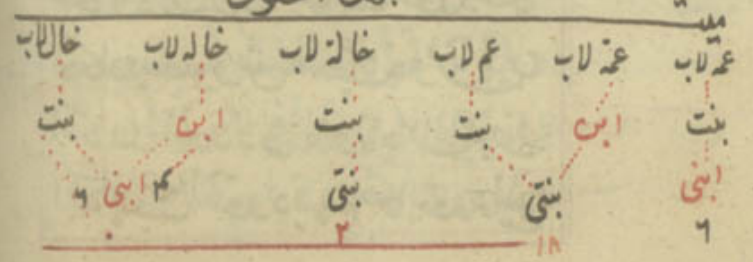 ميت
عمة لاب عمة لاب عم لاب خالة لاب خاله لاب خال لاب
بنت ابن بنت بنت ابن بنت
ابنى بنتى بنتى ابنى
٦ ١٨ ٢ ٤ ٦